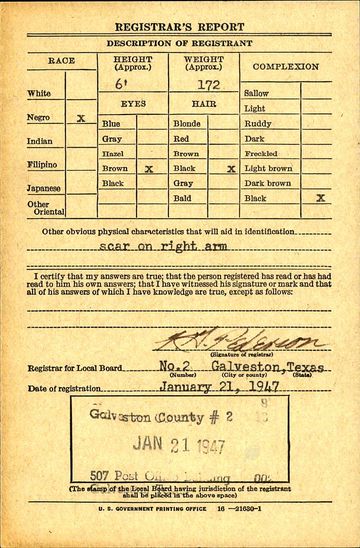 REGISTRAR'S REPORT
DESCRIPTION OF REGISTRANT
RACE
HEIGHT (Approx.)
WEIGHT (Approx.)
COMPLEXION
6'
172
EYES
HAIR
White
Sallow
Light
Negro X
Blue
Blonde
Ruddy
Gray
Red
Dark
Indian
Hazel
Brown
Freckled
Filipino
Brown X
Black X
Light brown
Japanese
Black
Gray
Dark brown
Other Oriental
Bald
Black X
Other obvious physical characteristics that will aid in identification
scar on right arm
I certify that my answers are true; that the person registered has read or has had
read to him his own answers; that I have witnessed his signature or mark and that
all of his answers of which I have knowledge are true, except as follows:
(Signature of registrar)
Registrar for Local Board No.2 Galveston, Texas
(Number) (City or county) (State)
Date of registration January 21, 1947
Galveston County # 2
JAN 21 1947
507 Post
(The stamp of the Local Board having jurisdiction of the registrant
shall be placed in the above space)
U. S. GOVERNMENT PRINTING OFFICE 16—21630-1